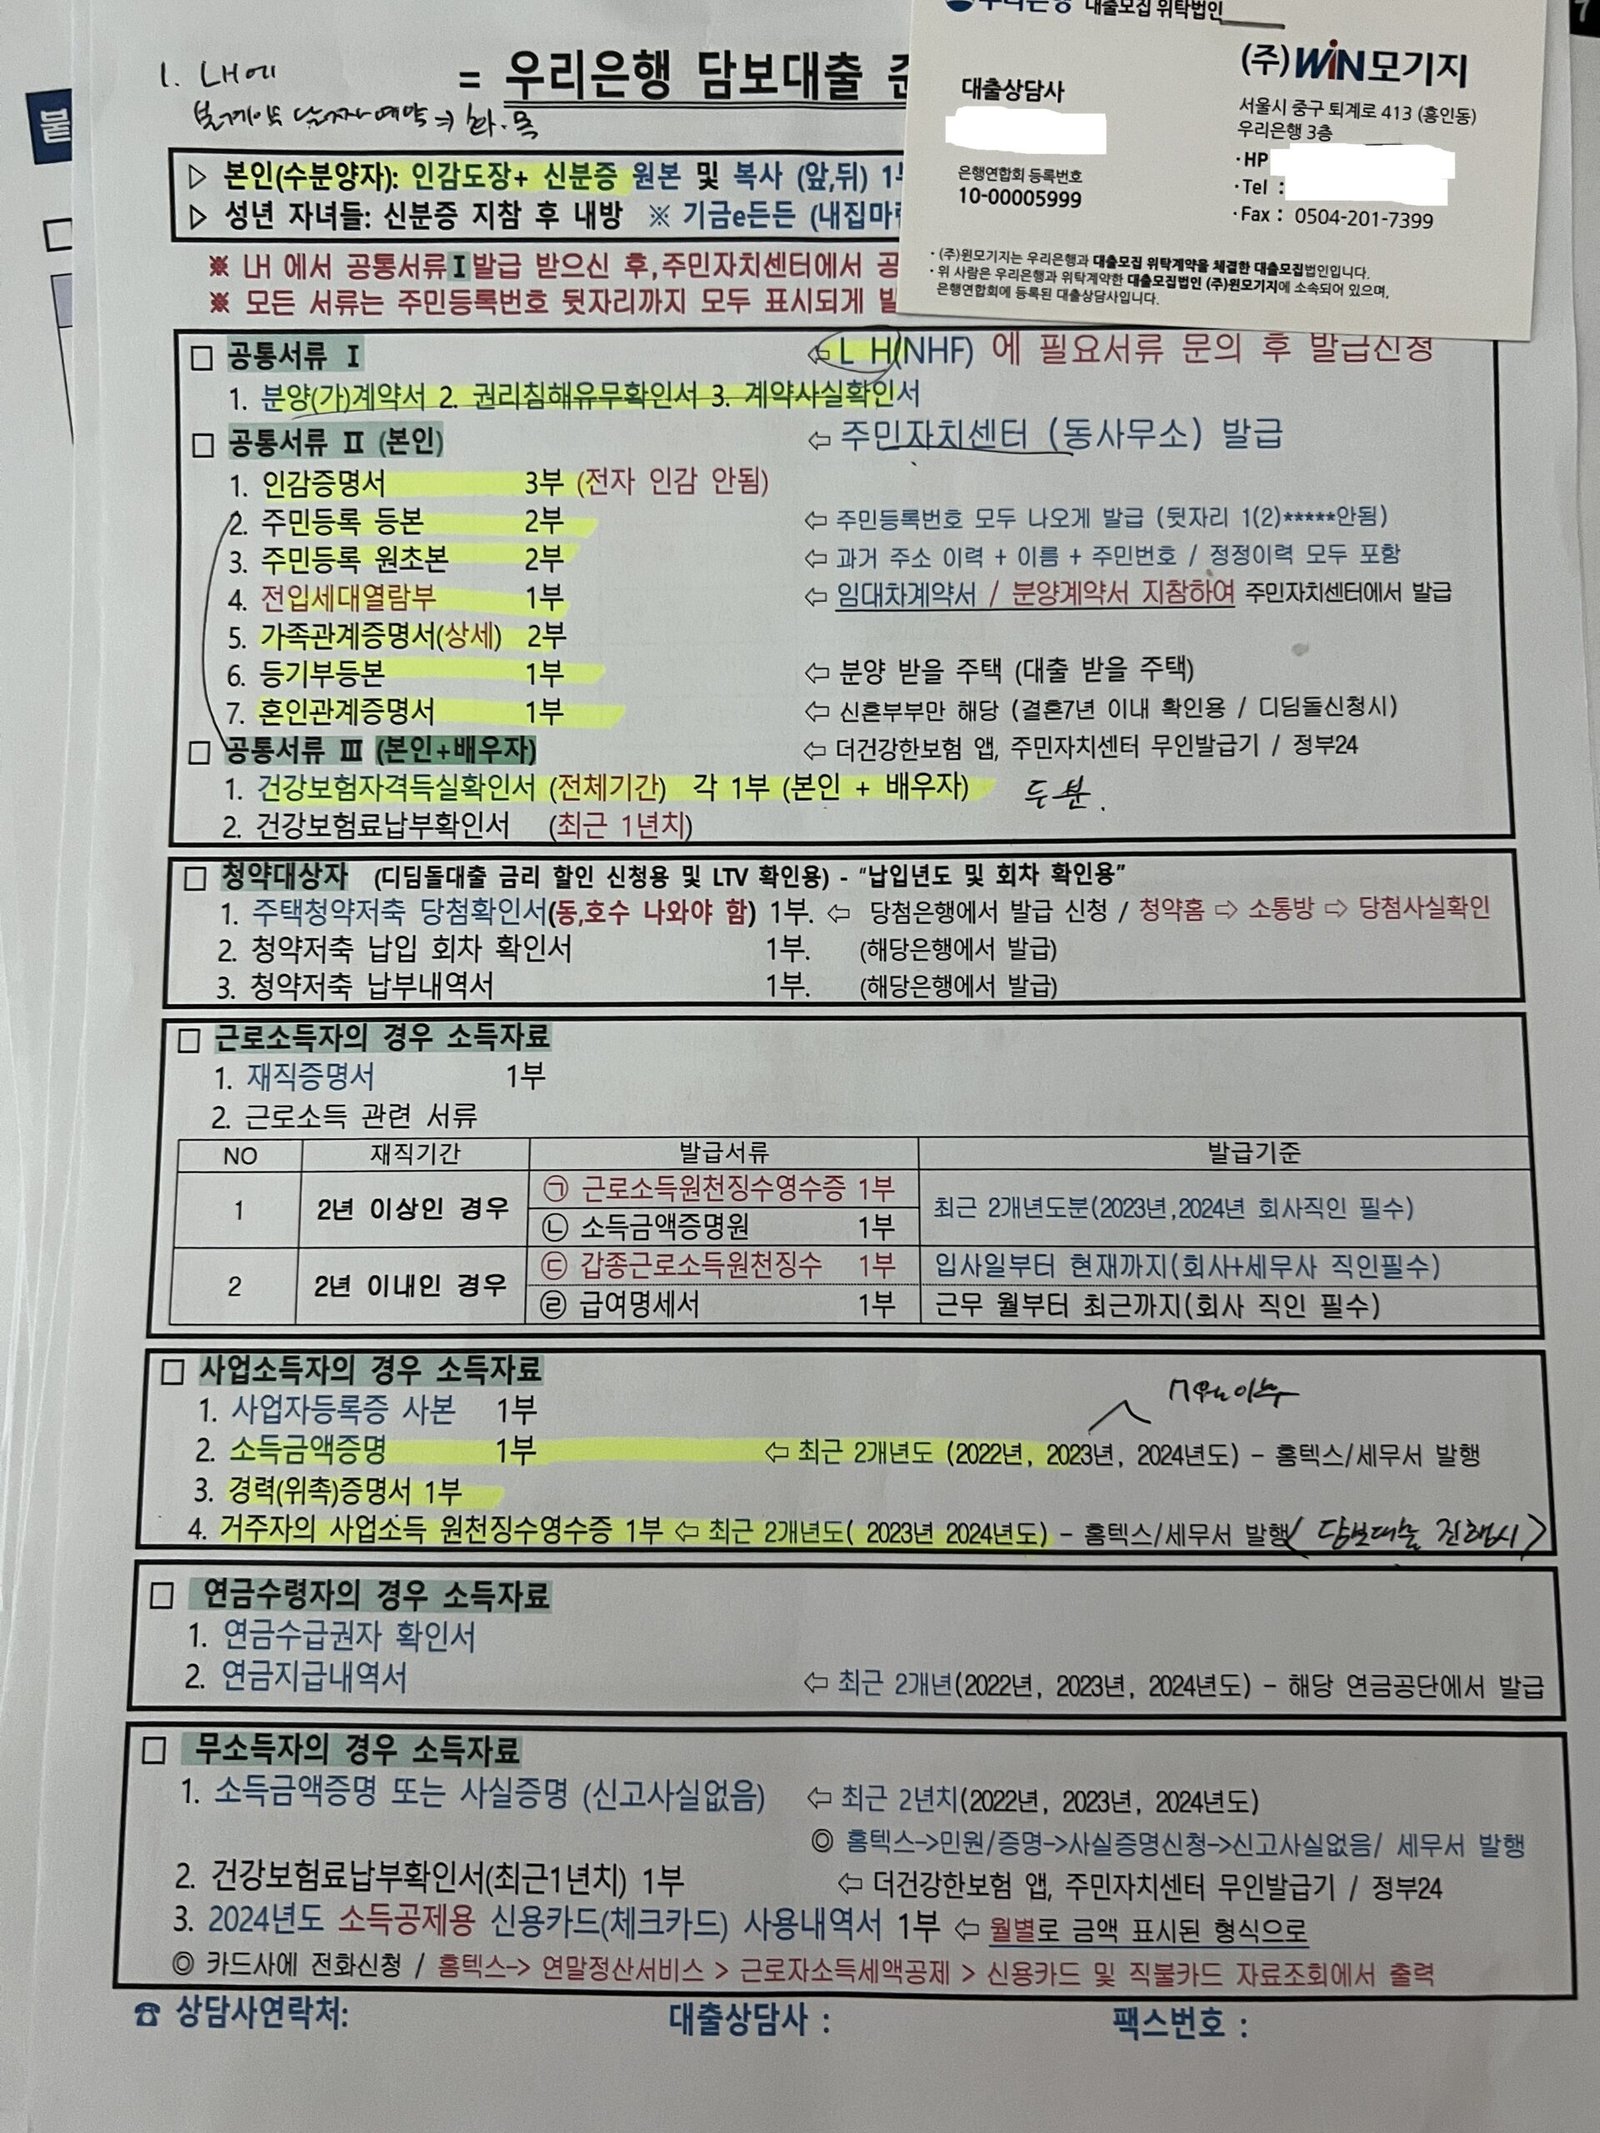 우리은행 대출모집 위탁법인
(주)WiN모기지
대출상담사
서울시 중구 퇴계로 413 (흥인동)
우리은행 3층
·HP
은행연합회 등록번호
·Tel :
10-00005999
·Fax : 0504-201-7399
· (주)윈모기지는 우리은행과 대출모집 위탁계약을 체결한 대출모집법인입니다.
· 위 사람은 우리은행과 위탁계약한 대출모집법인 (주)윈모기지에 소속되어 있으며,
은행연합회에 등록된 대출상담사입니다.
1. LH에
= 우리은행 담보대출
⇒ 화·목
▷ 본인(수분양자): 인감도장+ 신분증 원본 및 복사 (앞,뒤)
▷ 성년 자녀들: 신분증 지참 후 내방 ※ 기금e든든
※ LH 에서 공통서류 I 발급 받으신 후,주민자치센터에서
※ 모든 서류는 주민등록번호 뒷자리까지 모두 표시되게
□ 공통서류 Ⅰ ⇦ L H(NHF) 에 필요서류 문의 후 발급신청
1. 분양(가)계약서 2. 권리침해유무확인서 3. 계약사실확인서
□ 공통서류 Ⅱ (본인) ⇦ 주민자치센터 (동사무소) 발급
1. 인감증명서 3부 (전자 인감 안됨)
2. 주민등록 등본 2부 ⇦ 주민등록번호 모두 나오게 발급 (뒷자리 1(2)*****안됨)
3. 주민등록 원초본 2부 ⇦ 과거 주소 이력 + 이름 + 주민번호 / 정정이력 모두 포함
4. 전입세대열람부 1부 ⇦ 임대차계약서 / 분양계약서 지참하여 주민자치센터에서 발급
5. 가족관계증명서(상세) 2부
6. 등기부등본 1부 ⇦ 분양 받을 주택 (대출 받을 주택)
7. 혼인관계증명서 1부 ⇦ 신혼부부만 해당 (결혼7년 이내 확인용 / 디딤돌신청시)
□ 공통서류 Ⅲ (본인+배우자) ⇦ 더건강한보험 앱, 주민자치센터 무인발급기 / 정부24
1. 건강보험자격득실확인서 (전체기간) 각 1부 (본인 + 배우자) 두분.
2. 건강보험료납부확인서 (최근 1년치)
□ 청약대상자 (디딤돌대출 금리 할인 신청용 및 LTV 확인용) - "납입년도 및 회차 확인용"
1. 주택청약저축 당첨확인서(동,호수 나와야 함) 1부. ⇦ 당첨은행에서 발급 신청 / 청약홈 ⇨ 소통방 ⇨ 당첨사실확인
2. 청약저축 납입 회차 확인서 1부. (해당은행에서 발급)
3. 청약저축 납부내역서 1부. (해당은행에서 발급)
□ 근로소득자의 경우 소득자료
1. 재직증명서 1부
2. 근로소득 관련 서류
NO 재직기간 발급서류 발급기준
1 2년 이상인 경우 ㉠ 근로소득원천징수영수증 1부 최근 2개년도분(2023년,2024년 회사직인 필수)
㉡ 소득금액증명원 1부
2 2년 이내인 경우 ㉢ 갑종근로소득원천징수 1부 입사일부터 현재까지(회사+세무사 직인필수)
㉣ 급여명세서 1부 근무 월부터 최근까지(회사 직인 필수)
□ 사업소득자의 경우 소득자료
1. 사업자등록증 사본 1부 7월이후
2. 소득금액증명 1부 ⇦ 최근 2개년도 (2022년, 2023년, 2024년도) - 홈텍스/세무서 발행
3. 경력(위촉)증명서 1부
4. 거주자의 사업소득 원천징수영수증 1부 ⇦ 최근 2개년도( 2023년 2024년도) - 홈텍스/세무서 발행 (담보대출 진행시)
□ 연금수령자의 경우 소득자료
1. 연금수급권자 확인서
2. 연금지급내역서 ⇦ 최근 2개년(2022년, 2023년, 2024년도) - 해당 연금공단에서 발급
□ 무소득자의 경우 소득자료
1. 소득금액증명 또는 사실증명 (신고사실없음) ⇦ 최근 2년치(2022년, 2023년, 2024년도)
◎ 홈텍스->민원/증명->사실증명신청->신고사실없음/ 세무서 발행
2. 건강보험료납부확인서(최근1년치) 1부 ⇦ 더건강한보험 앱, 주민자치센터 무인발급기 / 정부24
3. 2024년도 소득공제용 신용카드(체크카드) 사용내역서 1부 ⇦ 월별로 금액 표시된 형식으로
◎ 카드사에 전화신청 / 홈텍스-> 연말정산서비스 > 근로자소득세액공제 > 신용카드 및 직불카드 자료조회에서 출력
☎ 상담사연락처: 대출상담사 : 팩스번호 :